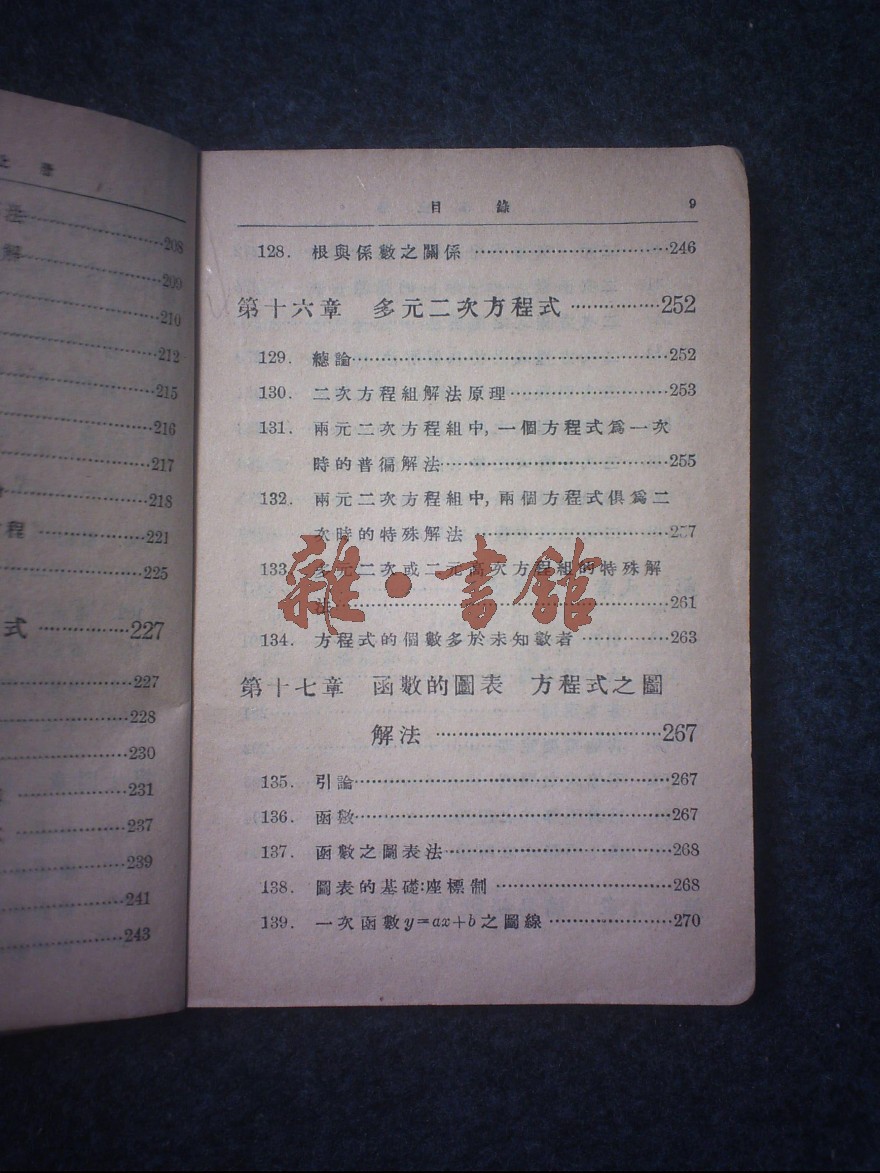 208
解
209
210
212
215
216
217
218
程
221
225
式……………227
227
228
230
231
237
239
241
243
目 錄 9
128. 根與係數之關係……………246
第十六章 多元二次方程式……………252
129. 總論……………252
130. 二次方程組解法原理……………253
131. 兩元二次方程組中,一個方程式爲一次
時的普徧解法……………255
132. 兩元二次方程組中,兩個方程式俱爲二
次時的特殊解法……………257
133. 多元二次或二元高次方程組的特殊解
法……………261
134. 方程式的個數多於未知數者……………263
第十七章 函數的圖表 方程式之圖
解法……………267
135. 引論……………267
136. 函數……………267
137. 函數之圖表法……………268
138. 圖表的基礎:座標制……………268
139. 一次函數y=ax+b之圖線……………270
雜·書館